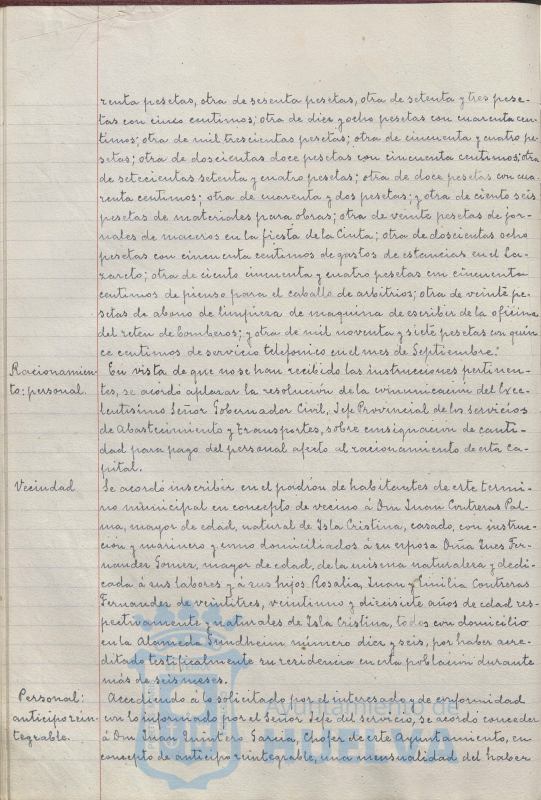 renta pesetas, otra de sesenta pesetas, otra de setenta y tres pese-
tas con cinco centimos; otra de diez y ocho pesetas con cuarenta cen-
timos; otra de mil trescientas pesetas; otra de cincuenta y cuatro pe-
setas; otra de doscientas doce pesetas con cincuenta centimos; otra
de setecientas setenta y cuatro pesetas; otra de doce pesetas con cua-
renta centimos; otra de cuarenta y dos pesetas; y otra de ciento seis
pesetas de materiales para obras; otra de veinte pesetas de jor-
nales de maceros en la fiesta de la Cinta; otra de doscientas ocho
pesetas con cincuenta centimos de gastos de estancias en el La-
zareto; otra de ciento cincuenta y cuatro pesetas con cincuenta
centimos de pienso para el caballo de arbitrios; otra de veinte pe-
setas de abono de limpieza de maquina de escribir de la oficina
del reten de bomberos; y otra de mil noventa y siete pesetas con quin-
ce centimos de servicio telefonico en el mes de Septiembre.
Racionamien-
to: personal.
En vista de que no se han recibido las instrucciones pertinen-
tes, se acordó aplazar la resolución de la comunicación del Exce-
lentisimo Señor Gobernador Civil, Jefe Provincial de los servicios
de Abastecimiento y Transportes, sobre consignación de canti-
dad para pago del personal afecto al racionamiento de esta Ca-
pital.
Vecindad
Se acordó inscribir en el padrón de habitantes de este termi-
no municipal en concepto de vecino á Don Juan Contreras Pal-
ma, mayor de edad, natural de Isla Cristina, casado, con instruc-
ción y marinero y como domiciliados á su esposa Doña Ines Fer-
nandez Gomez, mayor de edad, de la misma naturaleza y dedi-
cada á sus labores y á sus hijos Rosalia, Juan y Emilia Contreras
Fernandez de veintitres, veintiuno y diecisiete años de edad res-
pectivamente y naturales de Isla Cristina, todos con domicilio
en la Alameda Sundheim número diez y seis, por haber acre-
ditado testificalmente su residencia en esta población durante
más de seis meses.
Personal:
anticipo rein-
tegrable.
Accediendo á lo solicitado por el interesado y de conformidad
con lo informado por el Señor Jefe del servicio, se acordó conceder
á Don Juan Quintero Garcia, Chofer de este Ayuntamiento, en
concepto de anticipo reintegrable, una mensualidad del haber
Ayuntamiento de
HUELVA